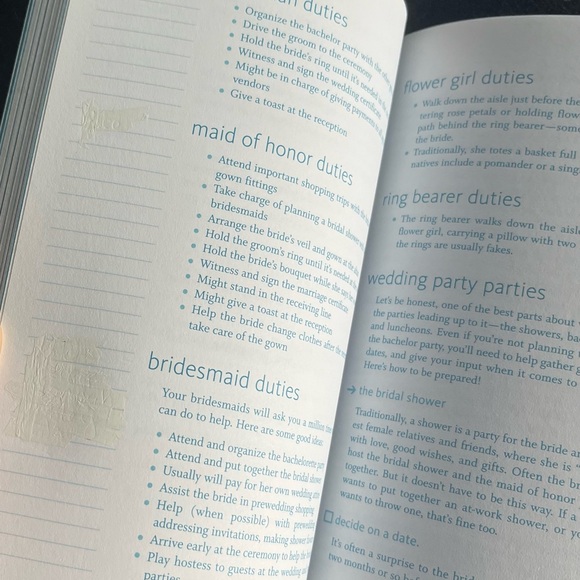 duties
Organize the bachelor party with the
Drive the groom to the ceremony
Hold the bride's ring until it's needed
Witness and sign the wedding certificate
Might be in charge of giving payments to
vendors
Give a toast at the reception
maid of honor duties
Attend important shopping trips with the
gown fittings
Take charge of planning a bridal shower
bridesmaids
Arrange the bride's veil and gown at the
Hold the groom's ring until it's needed
Hold the bride's bouquet while she
Witness and sign the marriage certificate
Might stand in the receiving line
Might give a toast at the reception
Help the bride change clothes after the
take care of the gown
bridesmaid duties
Your bridesmaids will ask you a million times
can do to help. Here are some good ideas
Attend and organize the bachelorette party
Attend and put together the bridal shower
Usually will pay for her own wedding
Assist the bride in prewedding shopping
Help (when possible) with prewedding
addressing invitations, making shower
Arrive early at the ceremony to help the
Play hostess to guests at the wedding
parties
flower girl duties
Walk down the aisle just before the
tering rose petals or holding
path behind the ring bearer—some
the bride.
Traditionally, she totes a basket full
natives include a pomander or a
ring bearer duties
The ring bearer walks down the
flower girl, carrying a pillow with two
the rings are usually fakes.
wedding party parties
Let's be honest, one of the best parts about
the parties leading up to it—the showers,
and luncheons. Even if you're not planning
the bachelor party, you'll need to help gather
dates, and give your input when it comes to
Here's how to be prepared!
→ the bridal shower
Traditionally, a shower is a party for the bride
est female relatives and friends, where she is
with love, good wishes, and gifts. Often the
host the bridal shower and the maid of honor
together. But it doesn't have to be this way. If a
wants to put together an at-work shower, or
wants to throw one, that's fine too.
decide on a date.
It's often a surprise to the
two months or so